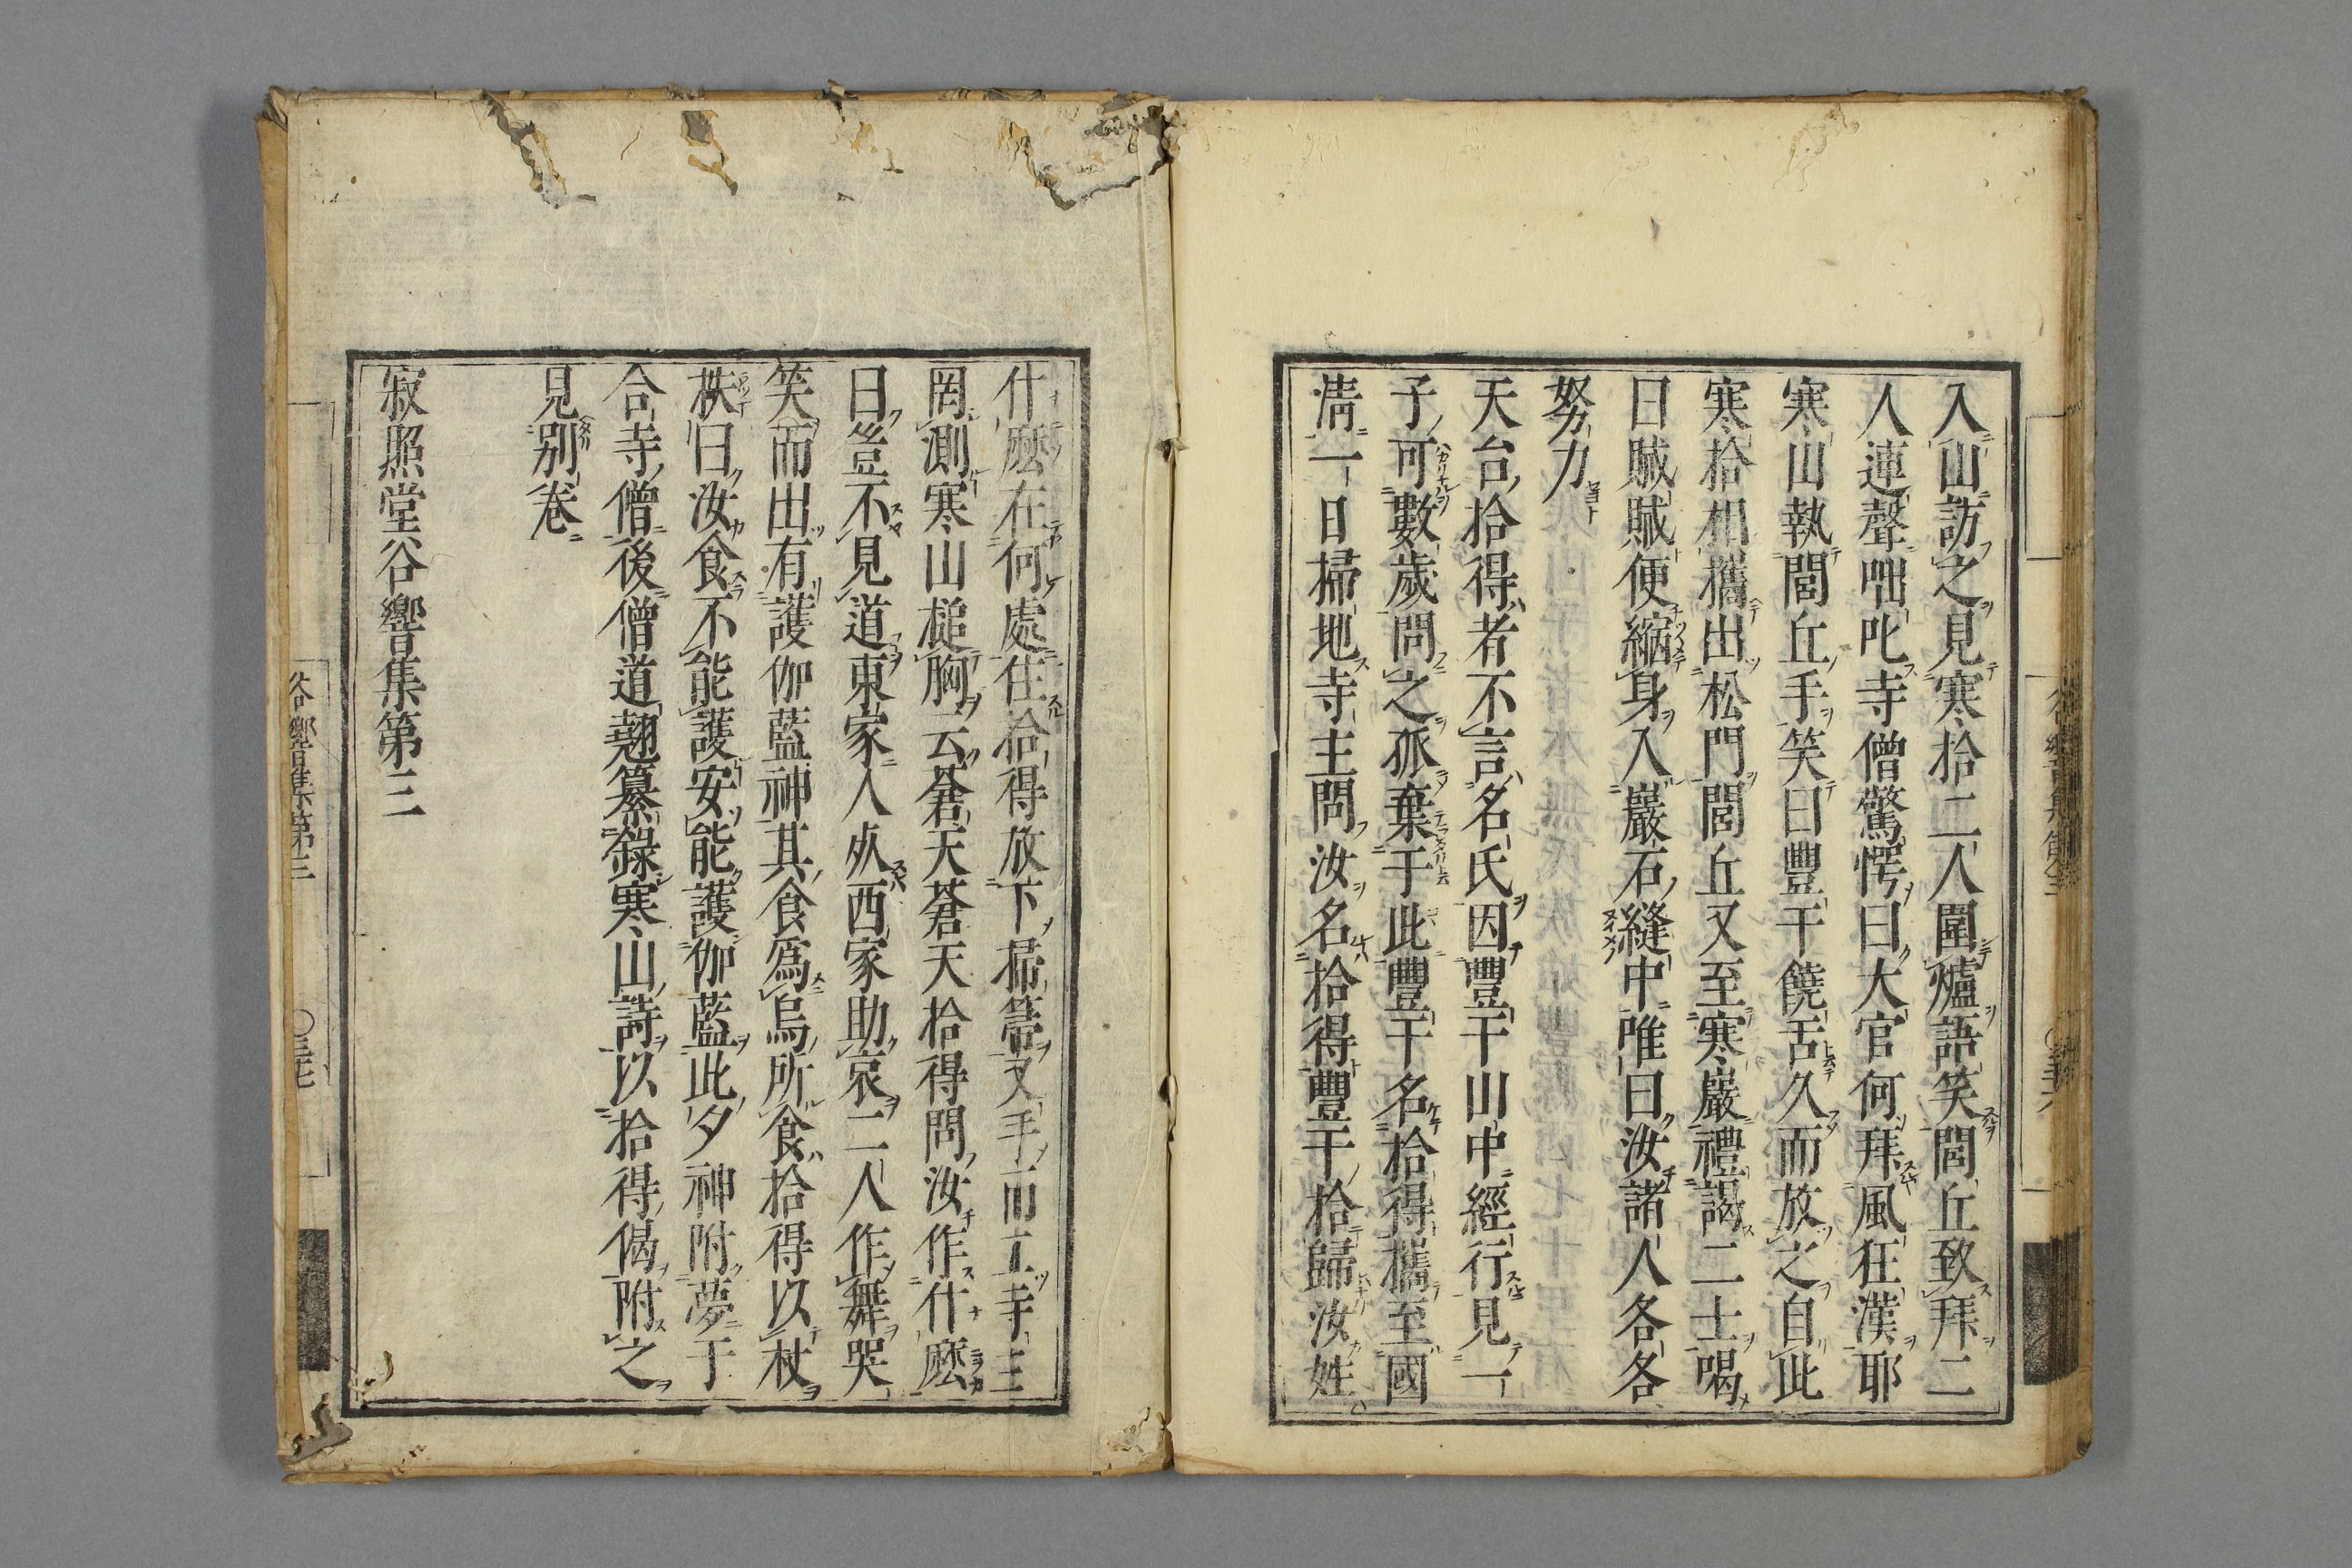 入山訪之見寒拾二人圍爐語笑閭丘致拜二
人連聲咄叱寺僧驚愕曰大官何拜風狂漢耶
寒山執閭丘手笑曰豐干饒舌久而放之自此
寒拾相攜出松門閭丘又至寒巖禮謁二士喝
曰賊賊便縮身入巖石縫中唯曰汝諸人各各
努力
天台拾得者不言名氏因豐干山中經行見一
子可數歲問之孤棄于此豐干名拾得攜至國
清一日掃地寺主問汝名拾得豐干拾歸汝姓
什麼在何處住拾得放下掃箒叉手而立寺主
罔測寒山搥胸云蒼天蒼天拾得問汝作什麼
曰豈不見道東家人死西家助哀二人作舞哭
笑而出有護伽藍神其食為烏所食拾得以杖
抶曰汝食不能護安能護伽藍此夕神附夢于
合寺僧後僧道翹纂錄寒山詩以拾得偈附之
見別卷
寂照堂谷響集第三
谷響集第三 〇三七